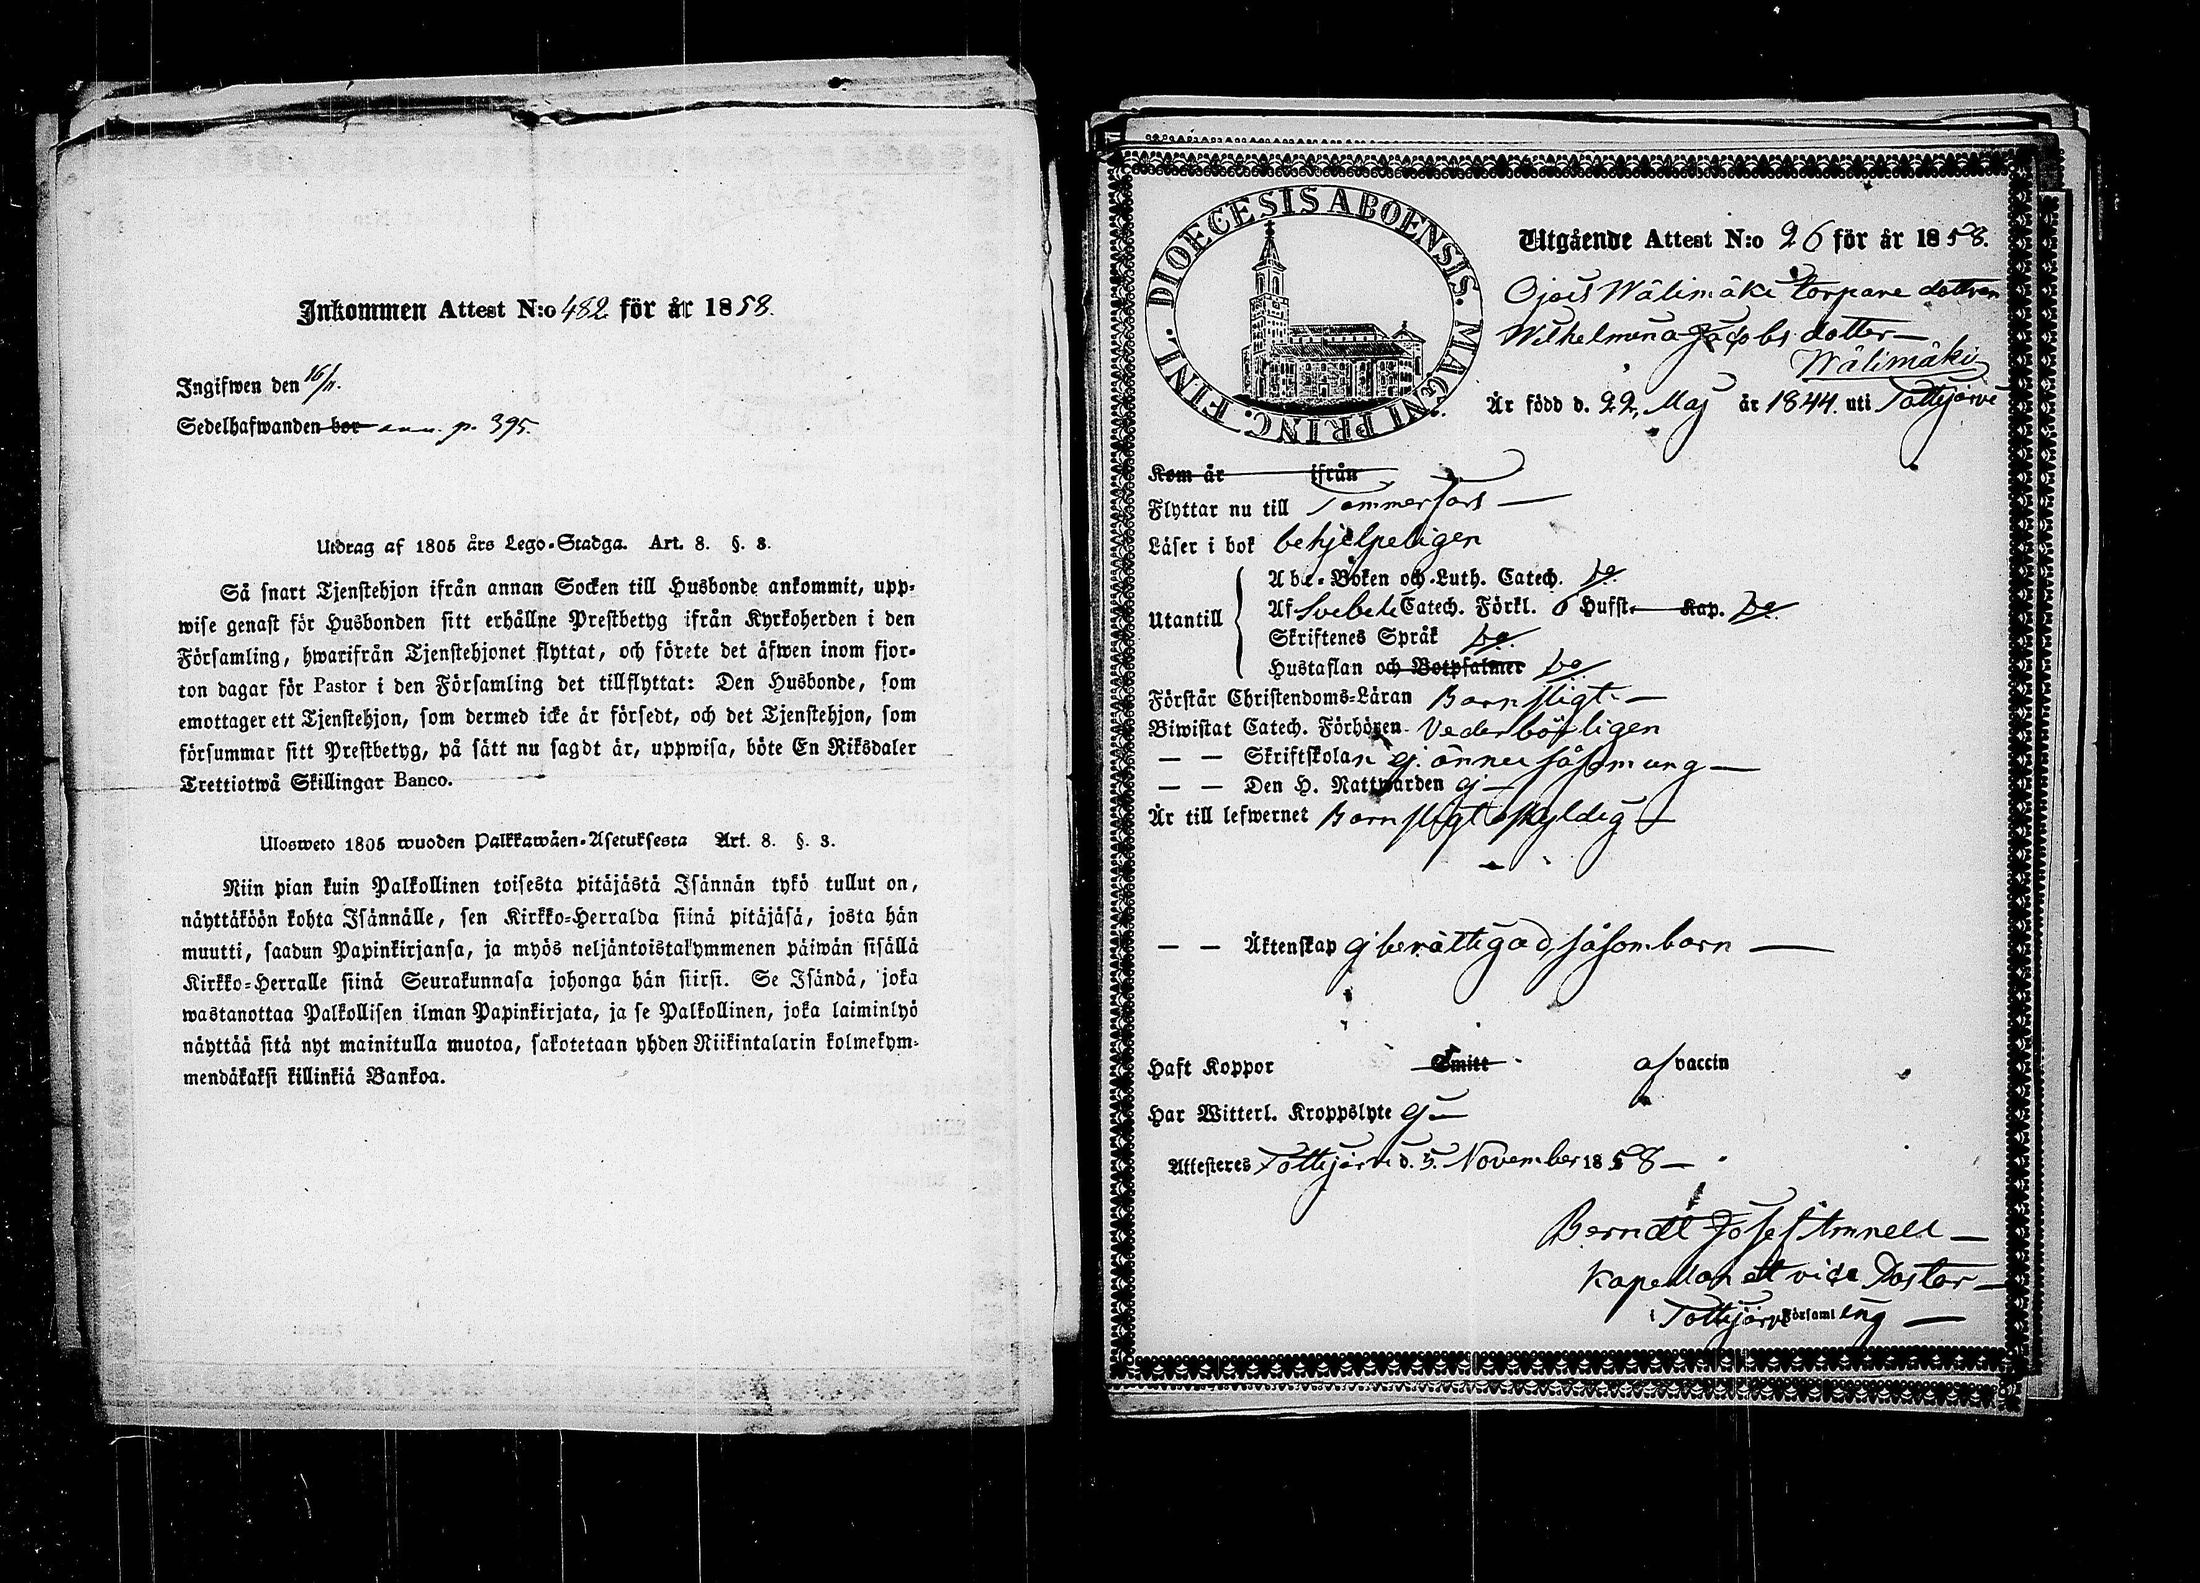 Inkommen Attest N:o 482 för år 1858.
Ingifwen den 16/11.
Sedelhafwanden bor ann. p. 395.
Utdrag af 1805 års Lego-Stadga. Art. 8. §. 3.
Så snart Tjenstehjon ifrån annan Socken till Husbonde ankommit, upp-
wise genast för Husbonden sitt erhållne Prestbetyg ifrån Kyrkoherden i den
Församling, hwarifrån Tjenstehjonet flyttat, och förete det äfwen inom fjor-
ton dagar för Pastor i den Församling det tillflyttat: Den Husbonde, som
emottager ett Tjenstehjon, som dermed icke är försedt, och det Tjenstehjon, som
försummar sitt Prestbetyg, på sätt nu sagdt är, uppwisa, böte En Riksdaler
Trettiotwå Skillingar Banco.
Ulosweto 1805 wuoden Palkkawäen-Asetuksesta Art. 8. §. 3.
Niin pian kuin Palkollinen toisesta pitäjästä Isännän tykö tullut on,
näyttäköön kohta Isännälle, sen Kirkko-Herralda siinä pitäjäsä, josta hän
muutti, saadun Papinkirjansa, ja myös neljäntoistakymmenen päiwän sisällä
Kirkko-Herralle siinä Seurakunnasa johonga hän siirsi. Se Isändä, joka
wastanottaa Palkollisen ilman Papinkirjata, ja se Palkollinen, joka laiminlyö
näyttää sitä nyt mainitulla muotoa, sakotetaan yhden Riikintalarin kolmekym-
mendäkaksi killinkiä Bankoa.
DIOECESIS ABOENSIS. MAGNI PRINC. FINL.
Utgående Attest N:o 26 för år 1858.
Ojois Wälimäki torpare dottren
Wilhelmina Jacobs dotter —
Wälimäki
Är född d. 22, Maj år 1844. uti Tottijärvi
Kom år ifrån
Flyttar nu till Tammerfors —
Läser i bok behjelpeligen
Utantill
Abc-Boken och Luth. Catech. be.
Af Svebeli Catech. Förkl. 6 Hufst. Kap. be.
Skriftenes Språk be.
Hustaflan och Botpsalmer be
Förstår Christendoms-Läran Barnsligt —
Biwistat Catech. Förhören Vederbörligen
— — Skriftskolan ej ännu såsom ung —
— — Den H. Nattwarden ej —
Är till lefwernet Barnsligt oskyldig —
— — Äktenskap ej berättigad, såsom barn —
Haft Koppor Smitt af vaccin
Har Witterl. Kroppslyte ej —
Attesteres Tottijärvi d. 5. November 1858 —
Berndt Josef —
Kapellan ett vice Pastor —
i Tottijärvi Församling —